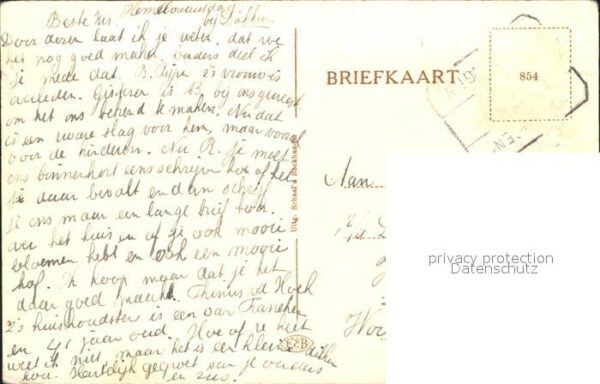 Hemelvaartsdag
Beste Ms. bij Dokkum
Door dezen laat ik je weten, dat we
het nog goed maken. Ouders deel ik
je mede dat B. Rijpe 's vrouw is
overleden. Gister is B. bij ons geweest
om het ons bekend te maken. Nu dat
is een ware slag voor hem, maar vooral
voor de kinderen. Nu R. je moet
ons binnenkort eens schrijven hoe of het
je daar bevalt en dan schrijf
je ons maar een lange brief hoor.
over het huis en of je ook mooie
bloemen hebt en ook een mooie
hof. Ik hoop maar dat je het
daar goed maakt. Thinus vd Hoek
z's huishoudster is een van Franeker
en 41 jaar oud. Hoe of ze heet
weet ik niet maar het is een kleine dikke
hoor. Hartelijk gegroet van je ouders
en zus.
Uitg. Schaaf's Boekhandel
BRIEFKAART
854
Aan
privacy protection
Datenschutz